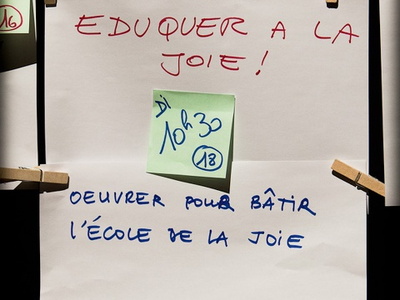 16
EDUQUER A LA
JOIE !
DI
10h30
18
OEUVRER POUR BÂTIR
L'ÉCOLE DE LA JOIE